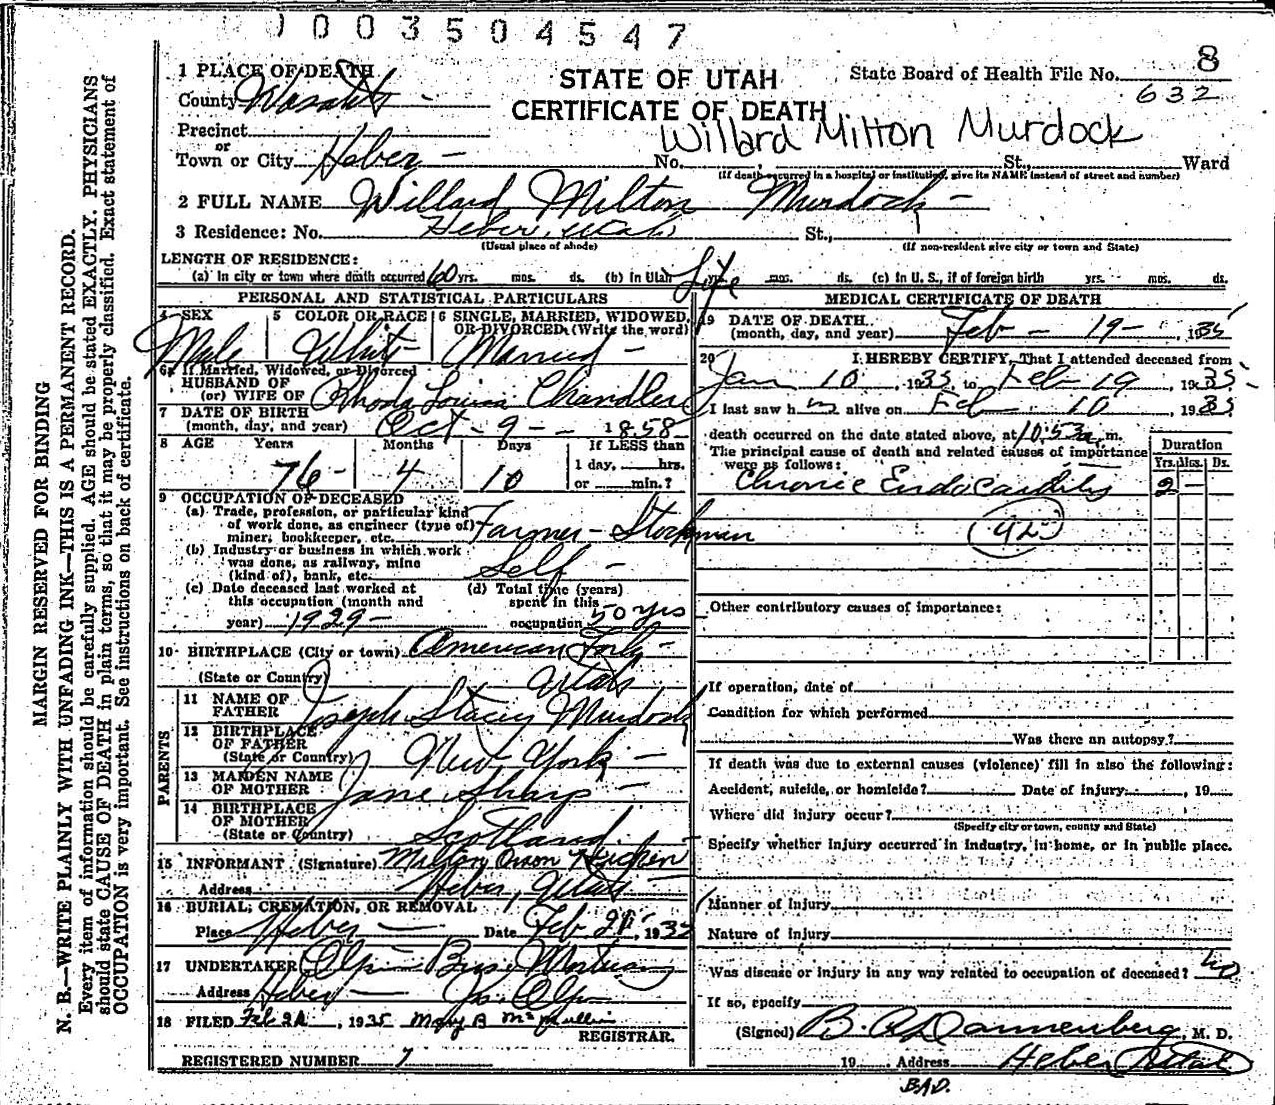 1003504547
8
1 PLACE OF DEATH
STATE OF UTAH
State Board of Health File No.
632
County Wasatch -
CERTIFICATE OF DEATH
Willard Milton Murdock
Precinct
or
Town or City Heber - No. , St., Ward
(If death occurred in a hospital or institution, give its NAME instead of street and number)
2 FULL NAME Willard Milton Murdock -
3 Residence: No. Heber, Utah St.,
(Usual place of abode) (If non-resident give city or town and State)
LENGTH OF RESIDENCE:
(a) In city or town where death occurred 60 yrs. mos. ds. (b) in Utah Life yrs. mos. ds. (c) in U. S., if of foreign birth yrs. mos. ds.
PERSONAL AND STATISTICAL PARTICULARS
4 SEX 5 COLOR OR RACE 6 SINGLE, MARRIED, WIDOWED, OR DIVORCED (Write the word)
Male White - Married -
6a If Married, Widowed, or Divorced
HUSBAND OF
(or) WIFE OF Rhoda Louisa Chandler
7 DATE OF BIRTH
(month, day, and year) Oct - 9 - - 1858
8 AGE Years Months Days If LESS than
76 - 4 10 1 day, hrs.
or min.?
9 OCCUPATION OF DECEASED
(a) Trade, profession, or particular kind
of work done, as engineer (type of)
miner, bookkeeper, etc. Farmer - Stockman
(b) Industry or business in which work
was done, as railway, mine
(kind of), bank, etc. Self -
(c) Date deceased last worked at
this occupation (month and
year) 1929 -
(d) Total time (years)
spent in this
occupation 50 yrs
10 BIRTHPLACE (City or town) American Fork -
(State or Country) Utah
PARENTS
11 NAME OF
FATHER Joseph Stacey Murdock
12 BIRTHPLACE
OF FATHER
(State or Country) New York -
13 MAIDEN NAME
OF MOTHER Jane Sharp -
14 BIRTHPLACE
OF MOTHER
(State or Country) Scotland
15 INFORMANT (Signature) Milton Orson
Address Heber, Utah
16 BURIAL, CREMATION, OR REMOVAL
Place Heber - Date Feb 21, 1935
17 UNDERTAKER Olpin Bros. Mortuary
Address Heber - Olpin
18 FILED Feb 21, 1935 Mary B McMullin
REGISTRAR.
REGISTERED NUMBER 7
MEDICAL CERTIFICATE OF DEATH
19 DATE OF DEATH
(month, day, and year) Feb - 19 - , 1935
20 I HEREBY CERTIFY, That I attended deceased from
Jan 10, 1935, to Feb 19, 1935
I last saw him alive on Feb 10, 1935
death occurred on the date stated above, at 10:53 a. m.
The principal cause of death and related causes of importance
were as follows:
Duration
Yrs. Mos. Ds.
Chronic Endocarditis 2 -
Other contributory causes of importance:
If operation, date of
Condition for which performed
Was there an autopsy?
If death was due to external causes (violence) fill in also the following:
Accident, suicide, or homicide? Date of injury , 19
Where did injury occur?
(Specify city or town, county and State)
Specify whether injury occurred in industry, in home, or in public place.
Manner of injury
Nature of injury
Was disease or injury in any way related to occupation of deceased? no
If so, specify
(Signed) B. A. Dannenberg, M. D.
19 Address Heber Utah
BAD.
MARGIN RESERVED FOR BINDING
N. B.—WRITE PLAINLY WITH UNFADING INK—THIS IS A PERMANENT RECORD.
Every item of information should be carefully supplied. AGE should be stated EXACTLY. PHYSICIANS
should state CAUSE OF DEATH in plain terms, so that it may be properly classified. Exact statement of
OCCUPATION is very important. See instructions on back of certificate.